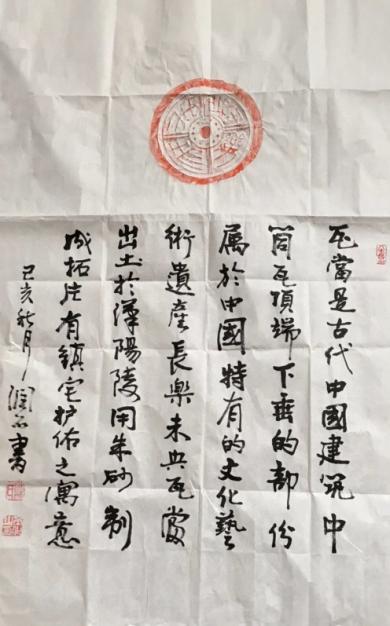 瓦當是古代中國建筑中
筒瓦頂端下垂的部份
属於中國特有的文化藝
術遺産長樂未央瓦當
出土於漢陽陵用朱砂制
成拓片有鎮宅护佑之寓意
己亥秋月润石書